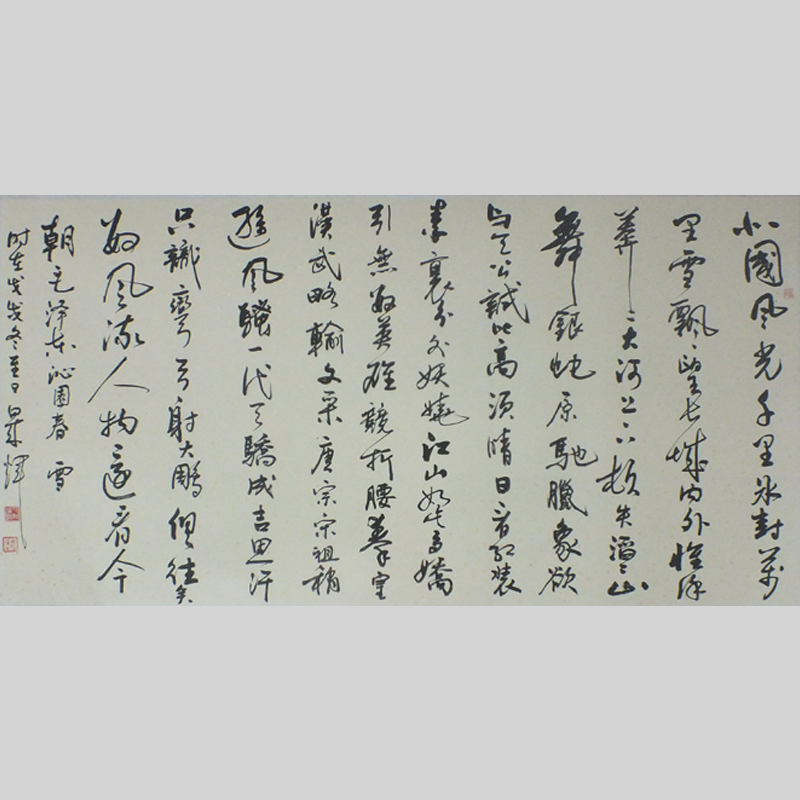 北國风光千里冰封萬
里雪飄望长城内外惟余
莽〻大河上下頓失滔〻山
舞銀蛇原馳臘象欲
与天公試比高须晴日看红装
素裹分外妖娆江山如此多嬌
引無数英雄競折腰秦皇
漢武略輸文采唐宗宋祖稍
遜风騷一代天驕成吉思汗
只識彎弓射大雕俱往矣
数风流人物還看今
朝毛泽东沁園春 雪
时在戊戌冬至日